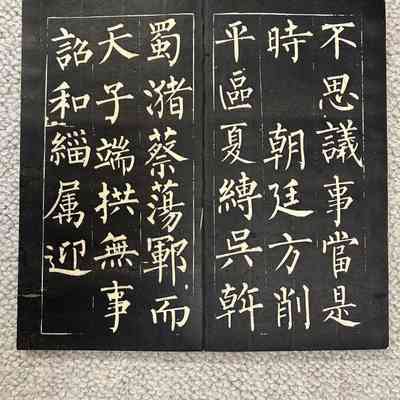 不思議事當是
時 朝廷方削
平區夏縛吳斡
蜀潴蔡蕩鄆而
天子端拱無事
詔和緇属迎